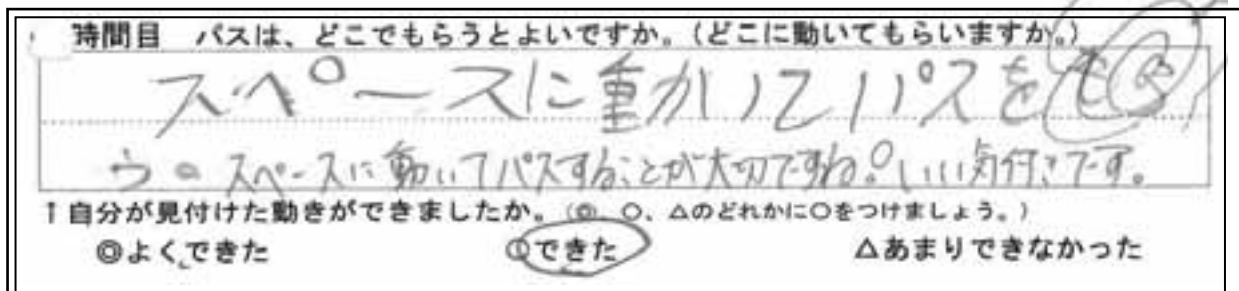 時間目 パスは、どこでもらうとよいですか。(どこに動いてもらいますか。)
スペースに動いてパスをもら
う。スペースに動いてパスすることが大切ですね。いい気付きです。
↑自分が見付けた動きができましたか。(◎、○、△のどれかに○をつけましょう。)
◎よくできた ○できた △あまりできなかった